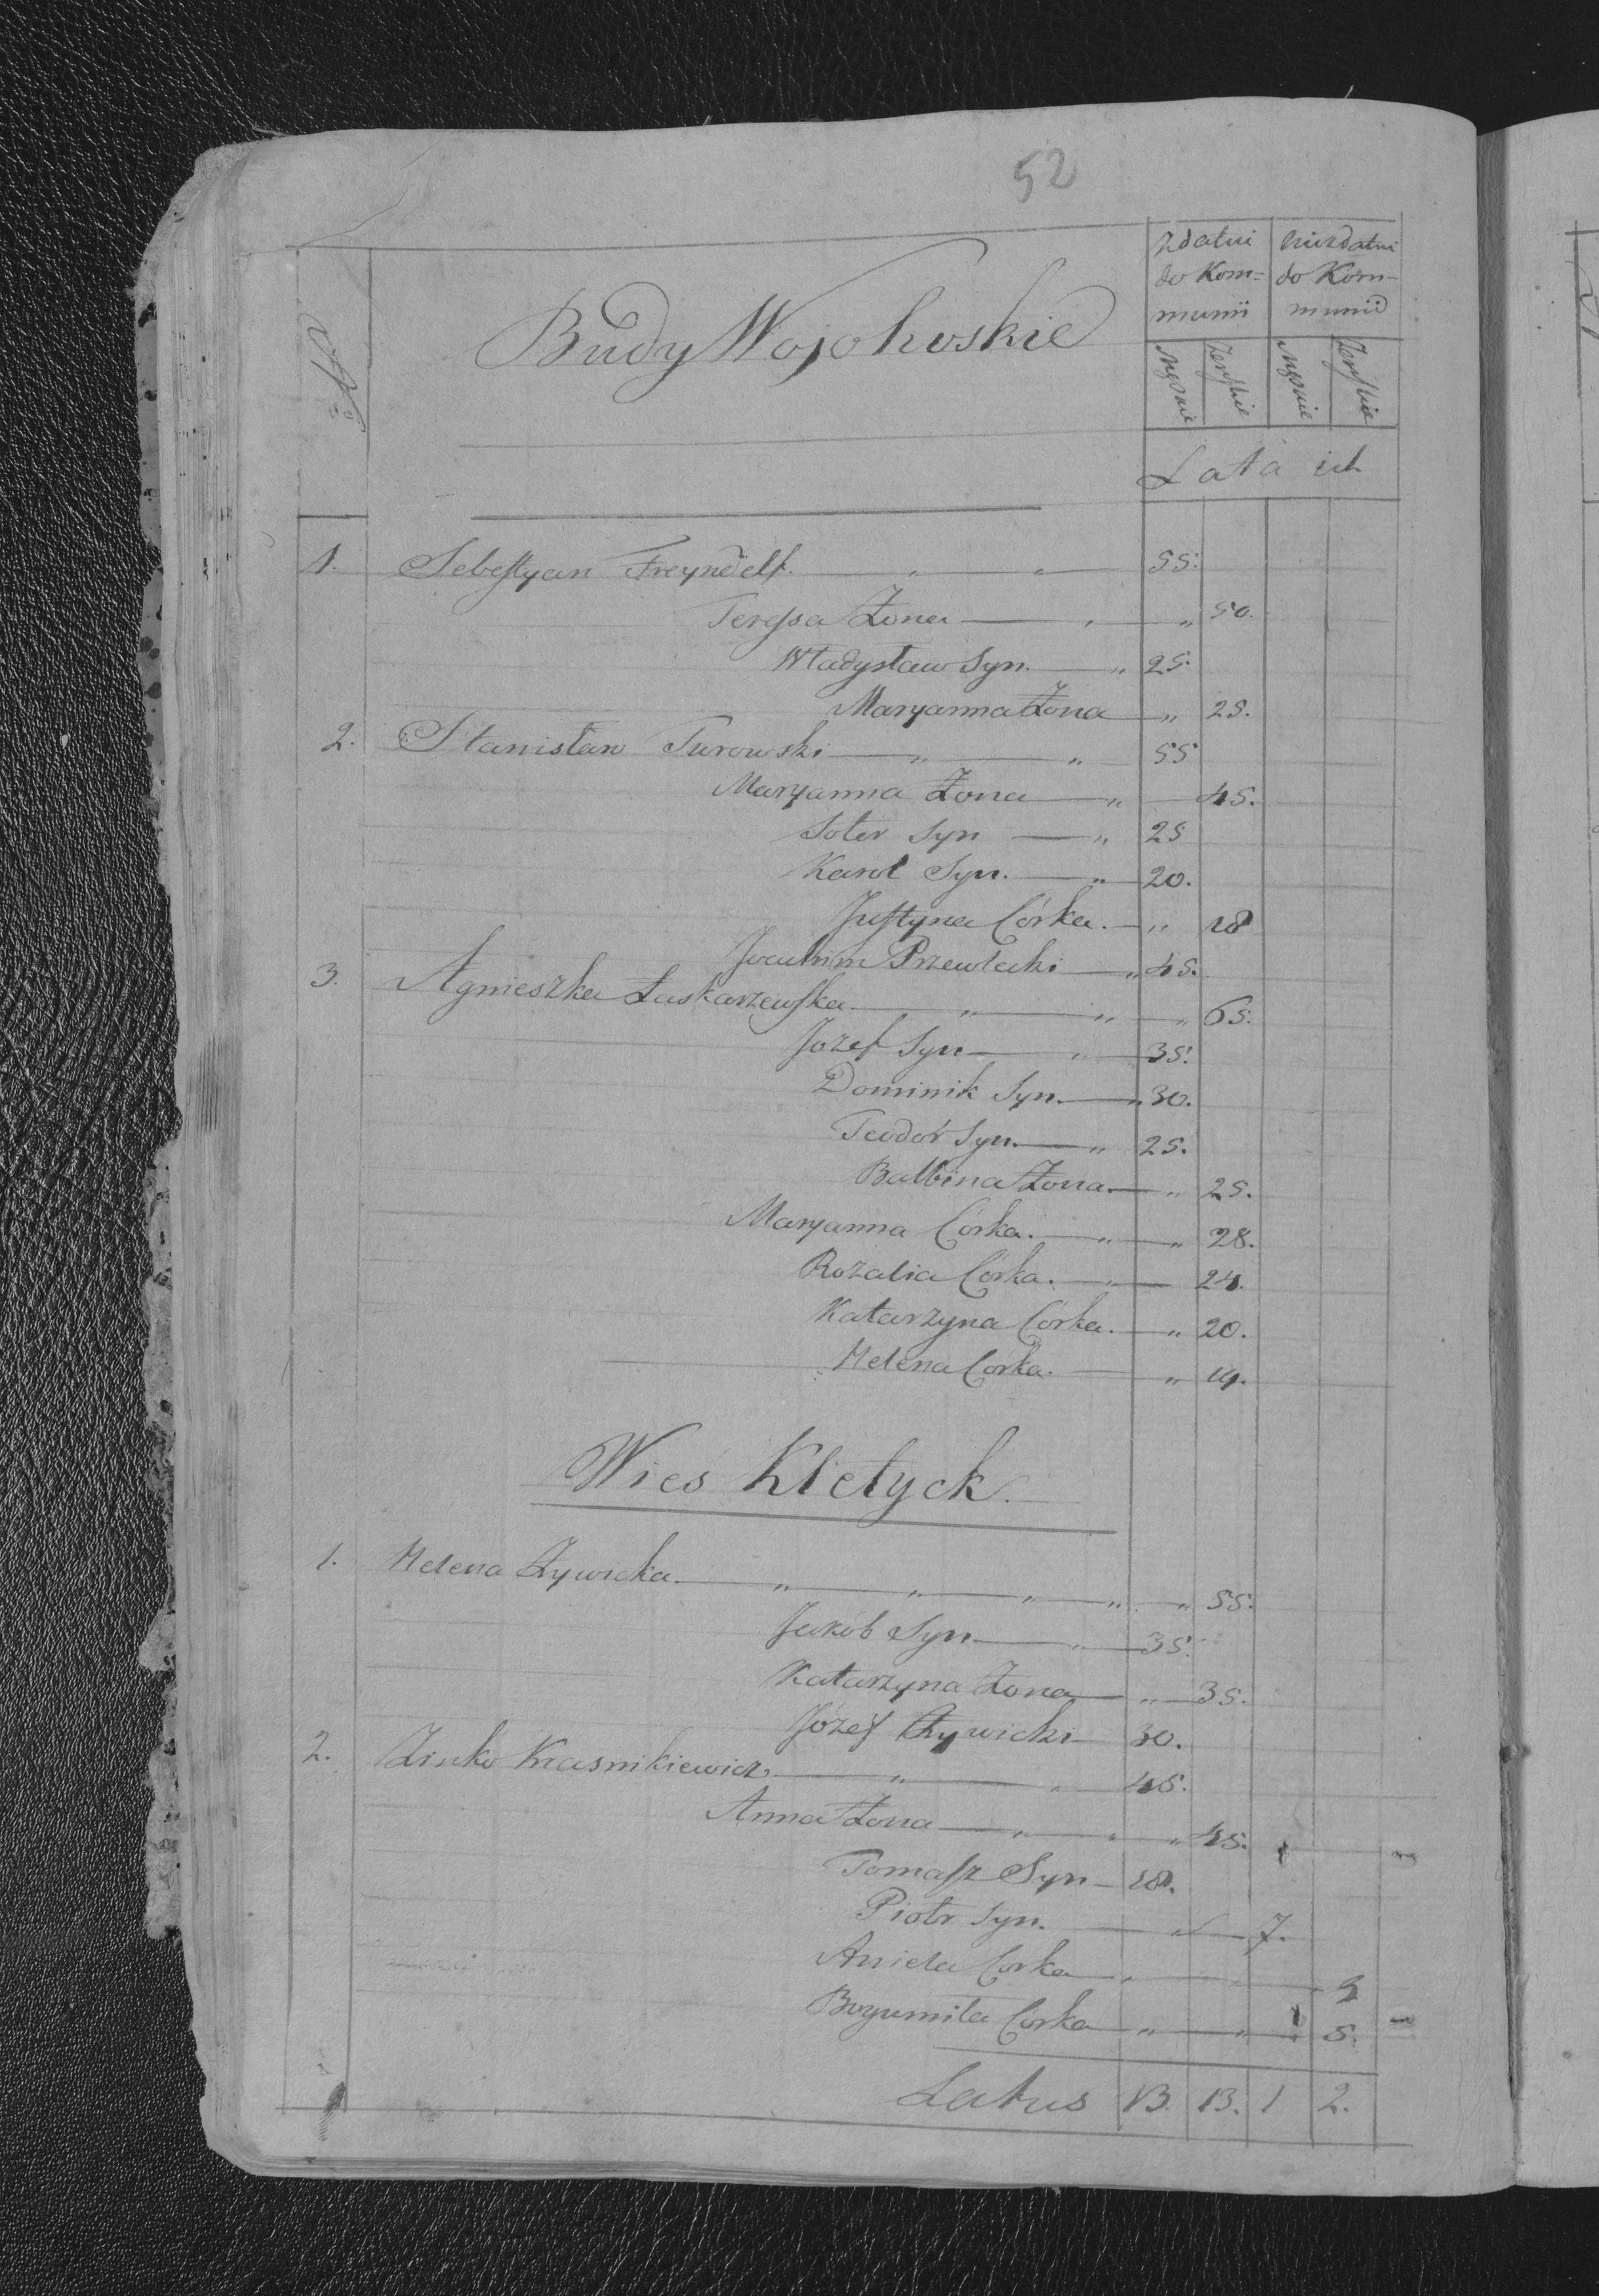 52
Zdatni do Kommunii
Niezdatni do Kommunii
Męskie
Żeńskie
Męskie
Żeńskie
№
Budy Wojohoskie
Lata ich
1. Sebestyan Freyndelf. " " 55.
Teressa Żona " " 50.
Władysław Syn. " 25.
Maryanna Żona " 25.
2. Stanisław Turowski " " 55
Maryanna Żona " 45.
Soter Syn " 25
Karol Syn. " 20.
Justyna Córka. " 18
Joachim Przewłocki " 45.
3. Agnieszka Łaskarzewska " " " 65.
Jozef Syn " 35.
Dominik Syn. " 30.
Teodor Syn. " 25.
Balbina Żona. " 25.
Maryanna Córka. " " 28.
Rozalia Córka. " 24.
Katarzyna Córka. " 20.
Helena Córka. " 19.
Wieś Kletyck.
1. Helena Żywicka " " " " " 55.
Jakób Syn " 35.
Katarzyna Żona " 35.
Józef Żywicki 30.
2. Zinko Krasnikiewicz " " 45.
Anna Żona " " " 45.
Tomasz Syn 18.
Piotr Syn. " 7.
Aniela Corka " 9
Bogumiła Córka " " 5.
Latus 13. 13. 1 2.